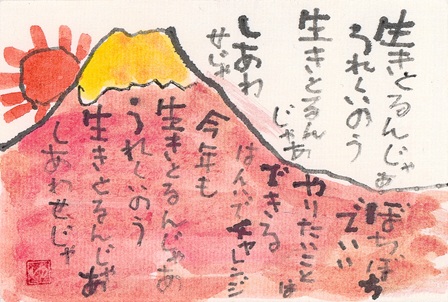 生きとるんじゃぁ
うれしいのう
生きとるんじゃあ
しあわ
せじゃ
ぼちぼち
でいい
やりたいことは
できる
はんいでチャレンジ
今年も
生きとるんじゃあ
うれしいのう
生きとるんじゃあ
しあわせじゃ